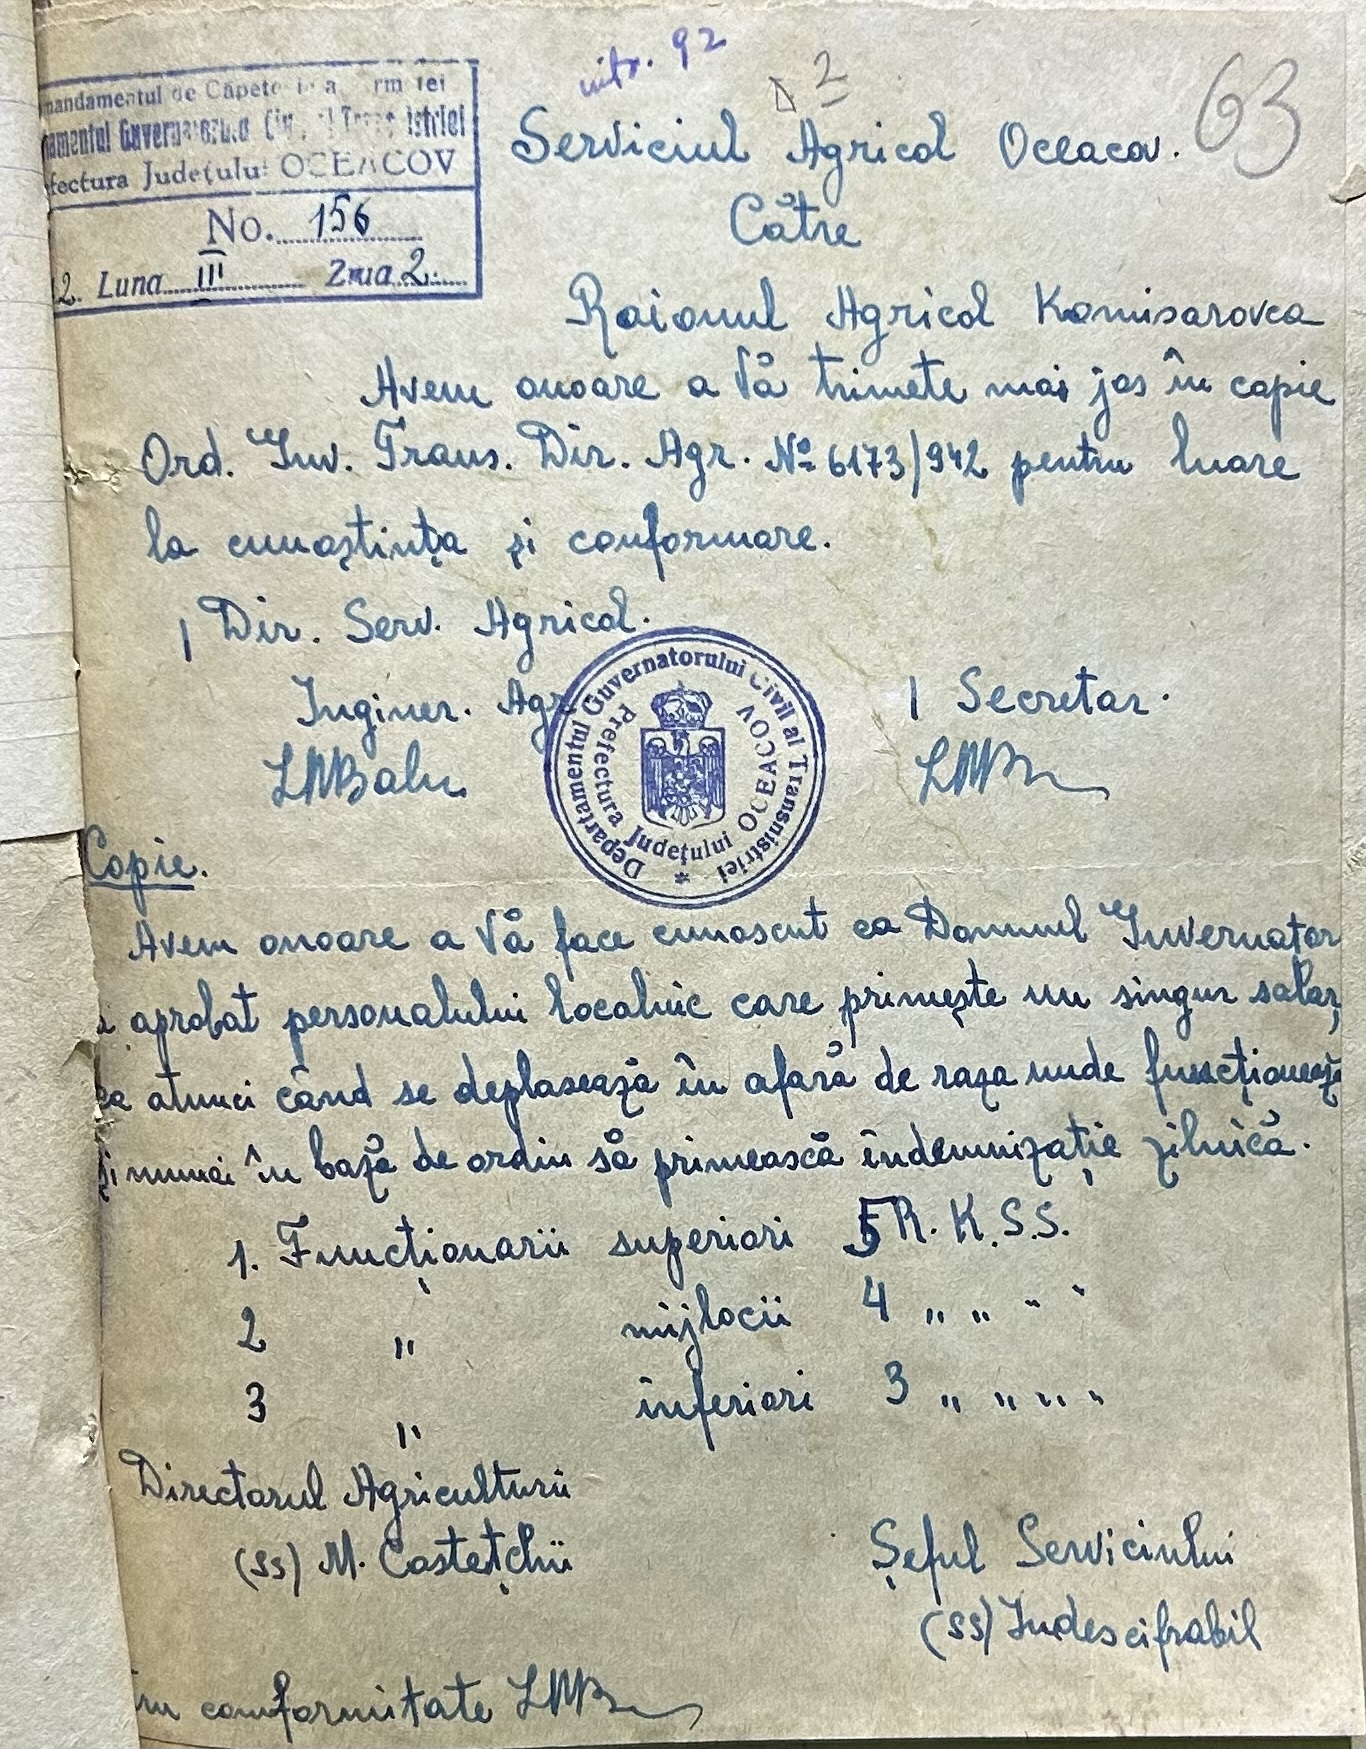 intr. 92
2
63
mandamentul de Căpetenie a Armatei
amentul Guvernatorului Civil al Transnistriei
fectura Județului OCEACOV
No. 156
2. Luna III Ziua 2.
Serviciul Agricol Oceacov.
Către
Raionul Agricol Komisarovca
Avem onoare a Vă trimete mai jos în copie
Ord. Guv. Trans. Dir. Agr. No 6173/942 pentru luare
la cunoștința și conformare.
Dir. Serv. Agricol.
Inginer. Agr
Secretar.
Departamentul Guvernatorului Civil al Transnistriei
Prefectura Județului OCEACOV
Copie.
Avem onoare a Vă face cunoscut ca Domnul Guvernator
a aprobat personalului localnic care primește un singur salar,
ca atunci când se deplasează în afară de raza unde funcționează
și numai în bază de ordin să primească îndemnizație zilnică.
1. Funcționarii superiori 5 R. K.S.S.
2 " mijlocii 4 " " " "
3 " înferiori 3 " " " "
Directorul Agriculturii
(ss) M. Costețchii
Șeful Serviciului
(ss) Indescifrabil
tru comformitate